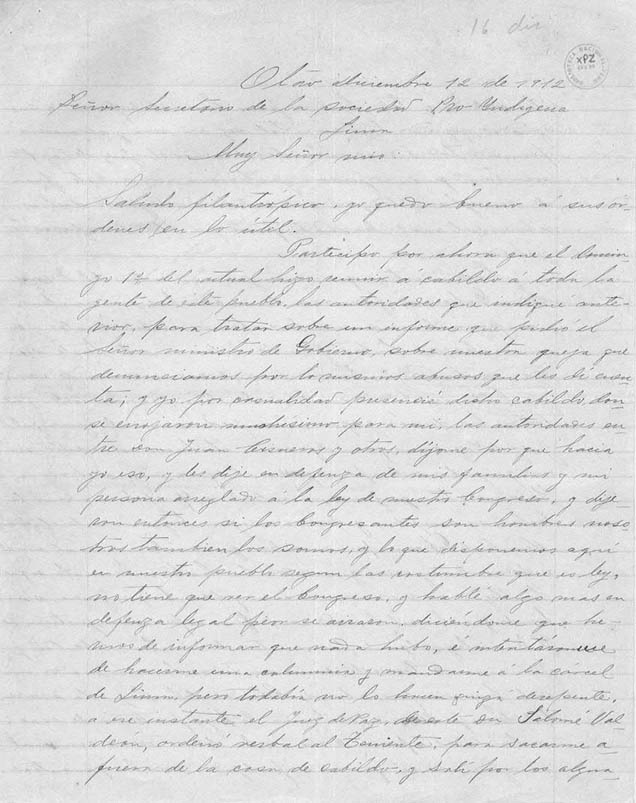 16 dic
XPZ
Otao Diciembre 12 de 1912
Señor Secretario de la sociedad Pro-Indigena
Lima
Muy Señor mio:
Saludo filantrópico, yo quedo bueno á sus ór-
denes en lo útil.
Participo por ahora que el Domin-
go 1º del actual hizo reunir á cabildo á toda la
gente de este pueblo, las autoridades que indique ante-
rior, para tratar sobre un informe que pidió el
Señor ministro de Gobierno, sobre nuestra queja que
denunciamos por lo mismos abusos que les dí cuen-
ta; y yo por casualidad presencié dicho cabildo, don-
se enojaron muchisimo para mi, las autoridades en-
tre don Juan Cisneros y otros, dijome por que hacia
yo eso, y les dije en defenza de mis familias y mi
persona arreglado á la ley de nuestro Congreso, y dije-
ron entonces si los Congresantes son hombres noso-
tros tambien los somos, y lo que disponemos aqui
en nuestro pueblo segun las costumbre que es ley,
no tiene que ver el Congreso, y hablé algo mas en
defenza legal peor se airaron, diciendome que he-
mos de informar que nada hubo, é intentáronse
de hacerme una calumnia y mandarme á la cárcel
de Lima, pero todabia no lo hacen quizá derepente,
a ese instante el Juez de Paz, de este Don Salomé Val-
deón, ordenó verbal al Teniente, para sacarme a-
fuera de la casa de cabildo, y salí por los algua-